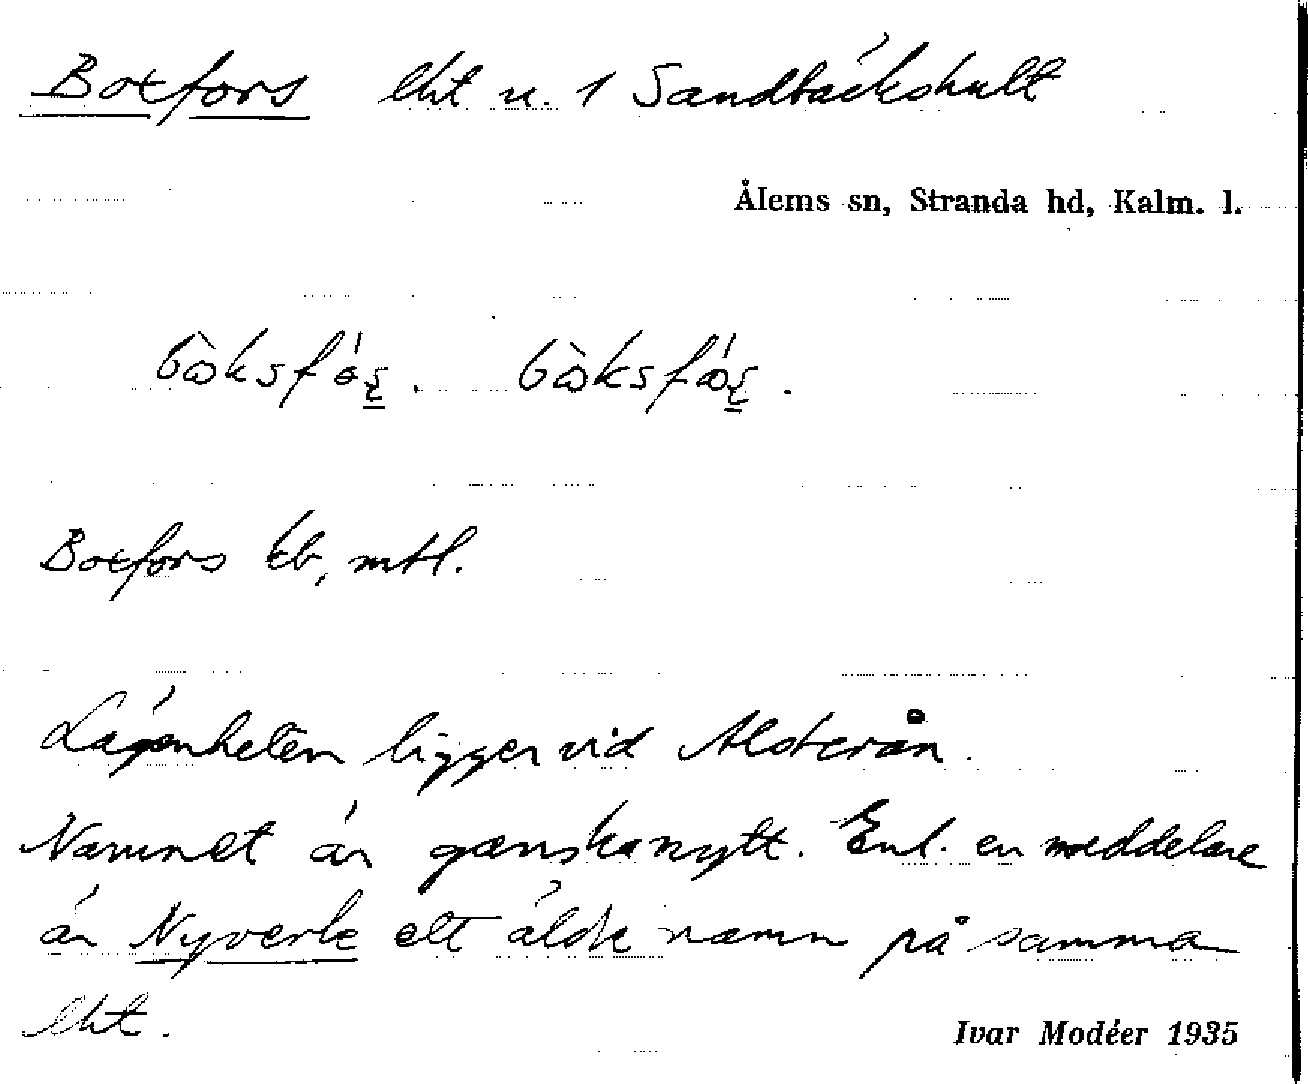 Boxfors lht u. 1 Sandbäckshult
Ålems sn, Stranda hd, Kalm. l.
Boxfors kb, mtl.
Lägenheten ligger vid Alsterån.
Namnet är ganska nytt. Enl. en meddelare
är Nyverke ett äldre namn på samma
lht.
Ivar Modéer 1935